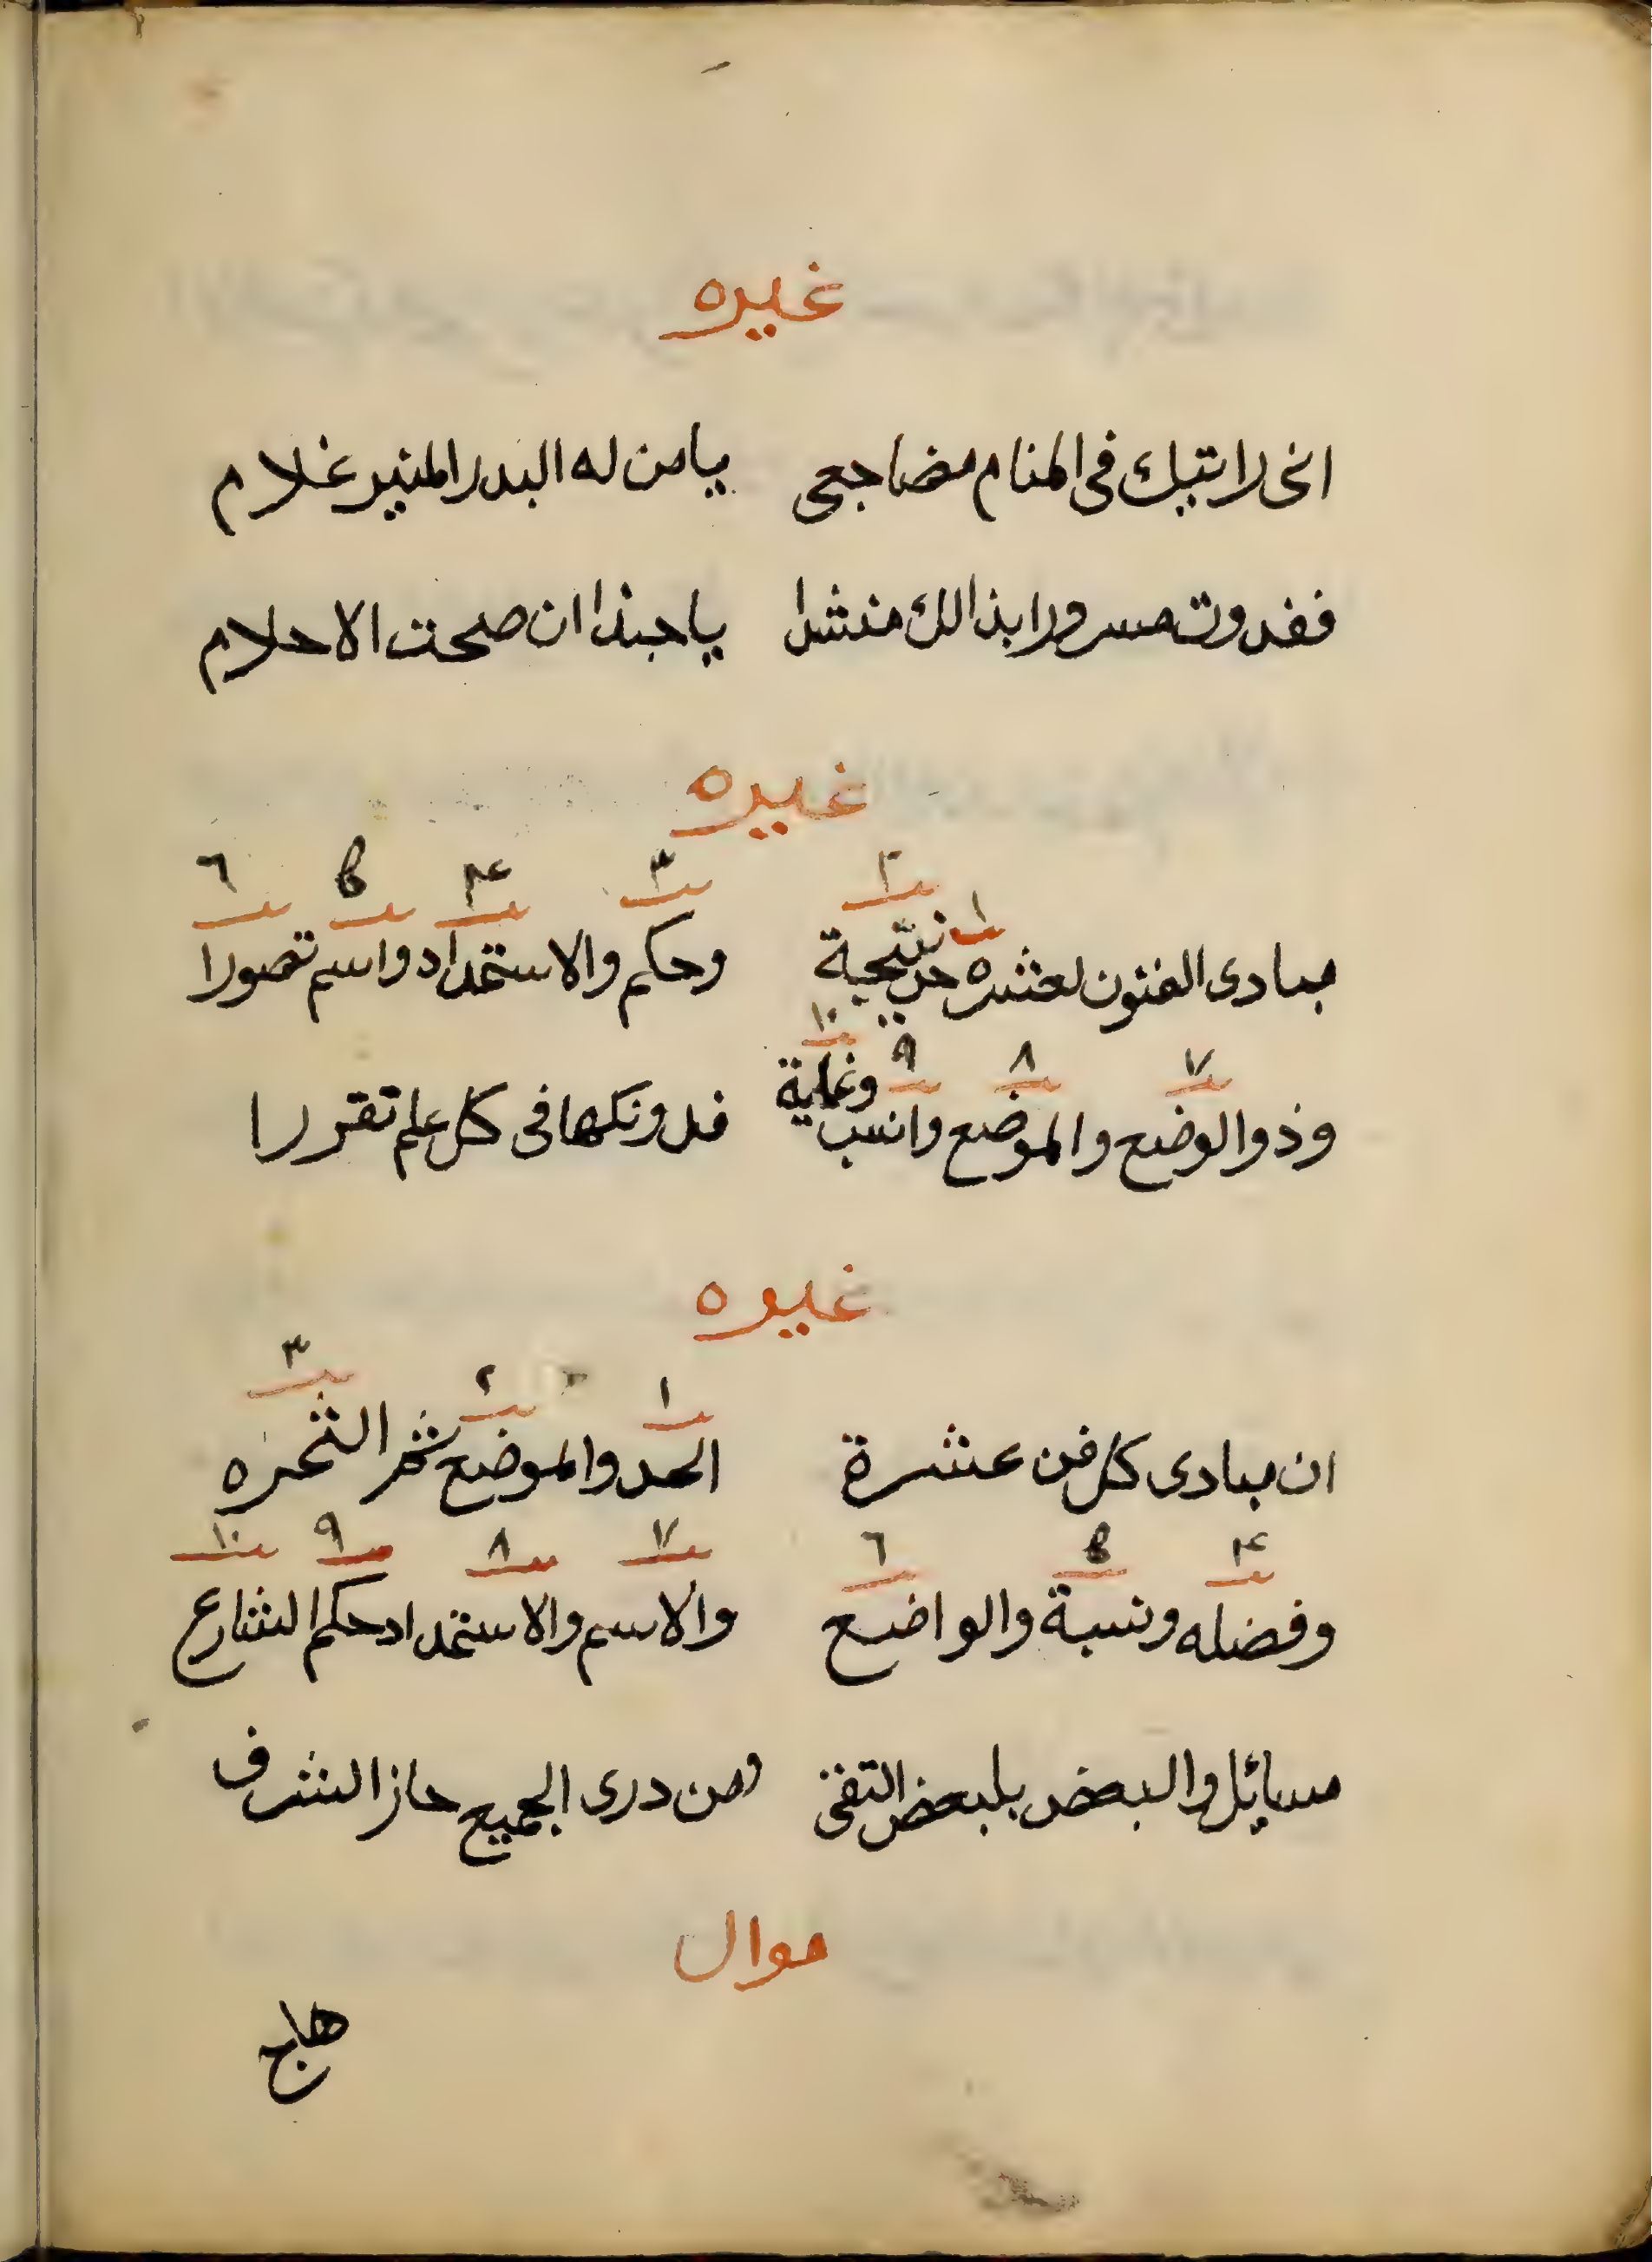 غيره
انى رايتك فى المنام مضاجعى يا من له البدر المنير غلام
فغدوت مسرورا بذالك منشدا يا حبذا ان صحت الاحلام
غيره
١ ٢ ٣ ٤ ٥ ٦
مبادى الفنون لعشره حد نتيجية وحكم والاستمداد واسم تصورا
٧ ٨ ٩ ١٠
وذو الوضع والموضع وانسب وغاية فدونكها فى كل علم تقررا
غيره
١ ٢ ٣
ان مبادى كل فن عشرة الحد والموضع ثم الثمره
٤ ٥ ٦ ٧ ٨ ٩ ١٠
وفضله ونسبة والواضع والاسم والاستمداد حكم الشارع
مسائل والبعض بلبعض التفى ومن درى الجميع حاز الشرف
موال
هاج